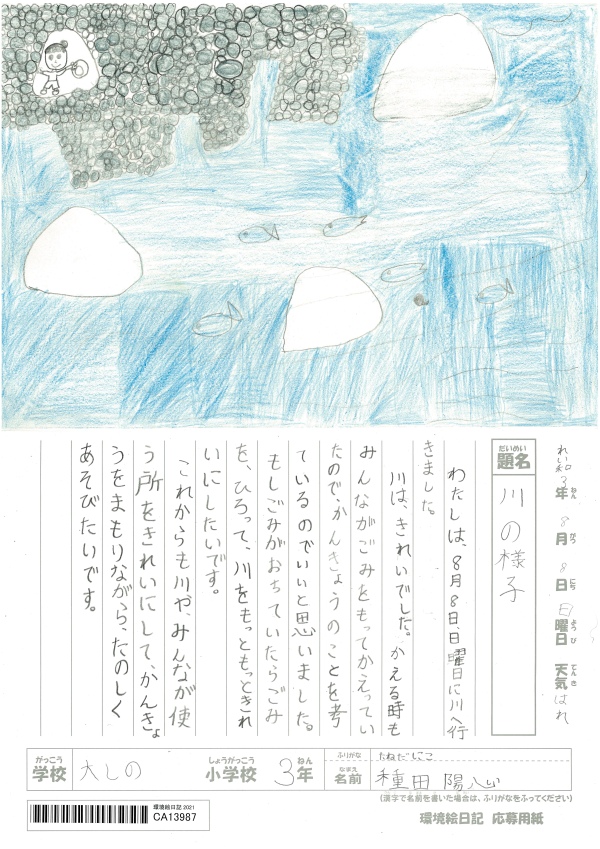 れい和3年8月8日日曜日 天気 はれ
ねん がつ にち ようび てんき
だいめい
題名
川の様子
わたしは、8月8日、日曜日に川へ行
きました。
川は、きれいでした。かえる時も
みんながごみをもってかえってい
たので、かんきょうのことを考
ているのでいいと思いました。
もしごみがおちていたらごみ
を、ひろって、川をもっともっときれ
いにしたいです。
これからも川や、みんなが使
う所をきれいにして、かんきょ
うをまもりながら、たのしく
あそびたいです。
がっこう しょうがっこう ねん
学校 大しの 小学校 3年
ふりがな たねだ
なまえ
名前 種田 陽心
(漢字で名前を書いた場合は、ふりがなをふってください)
環境絵日記 2021
CA13987
環境絵日記 応募用紙